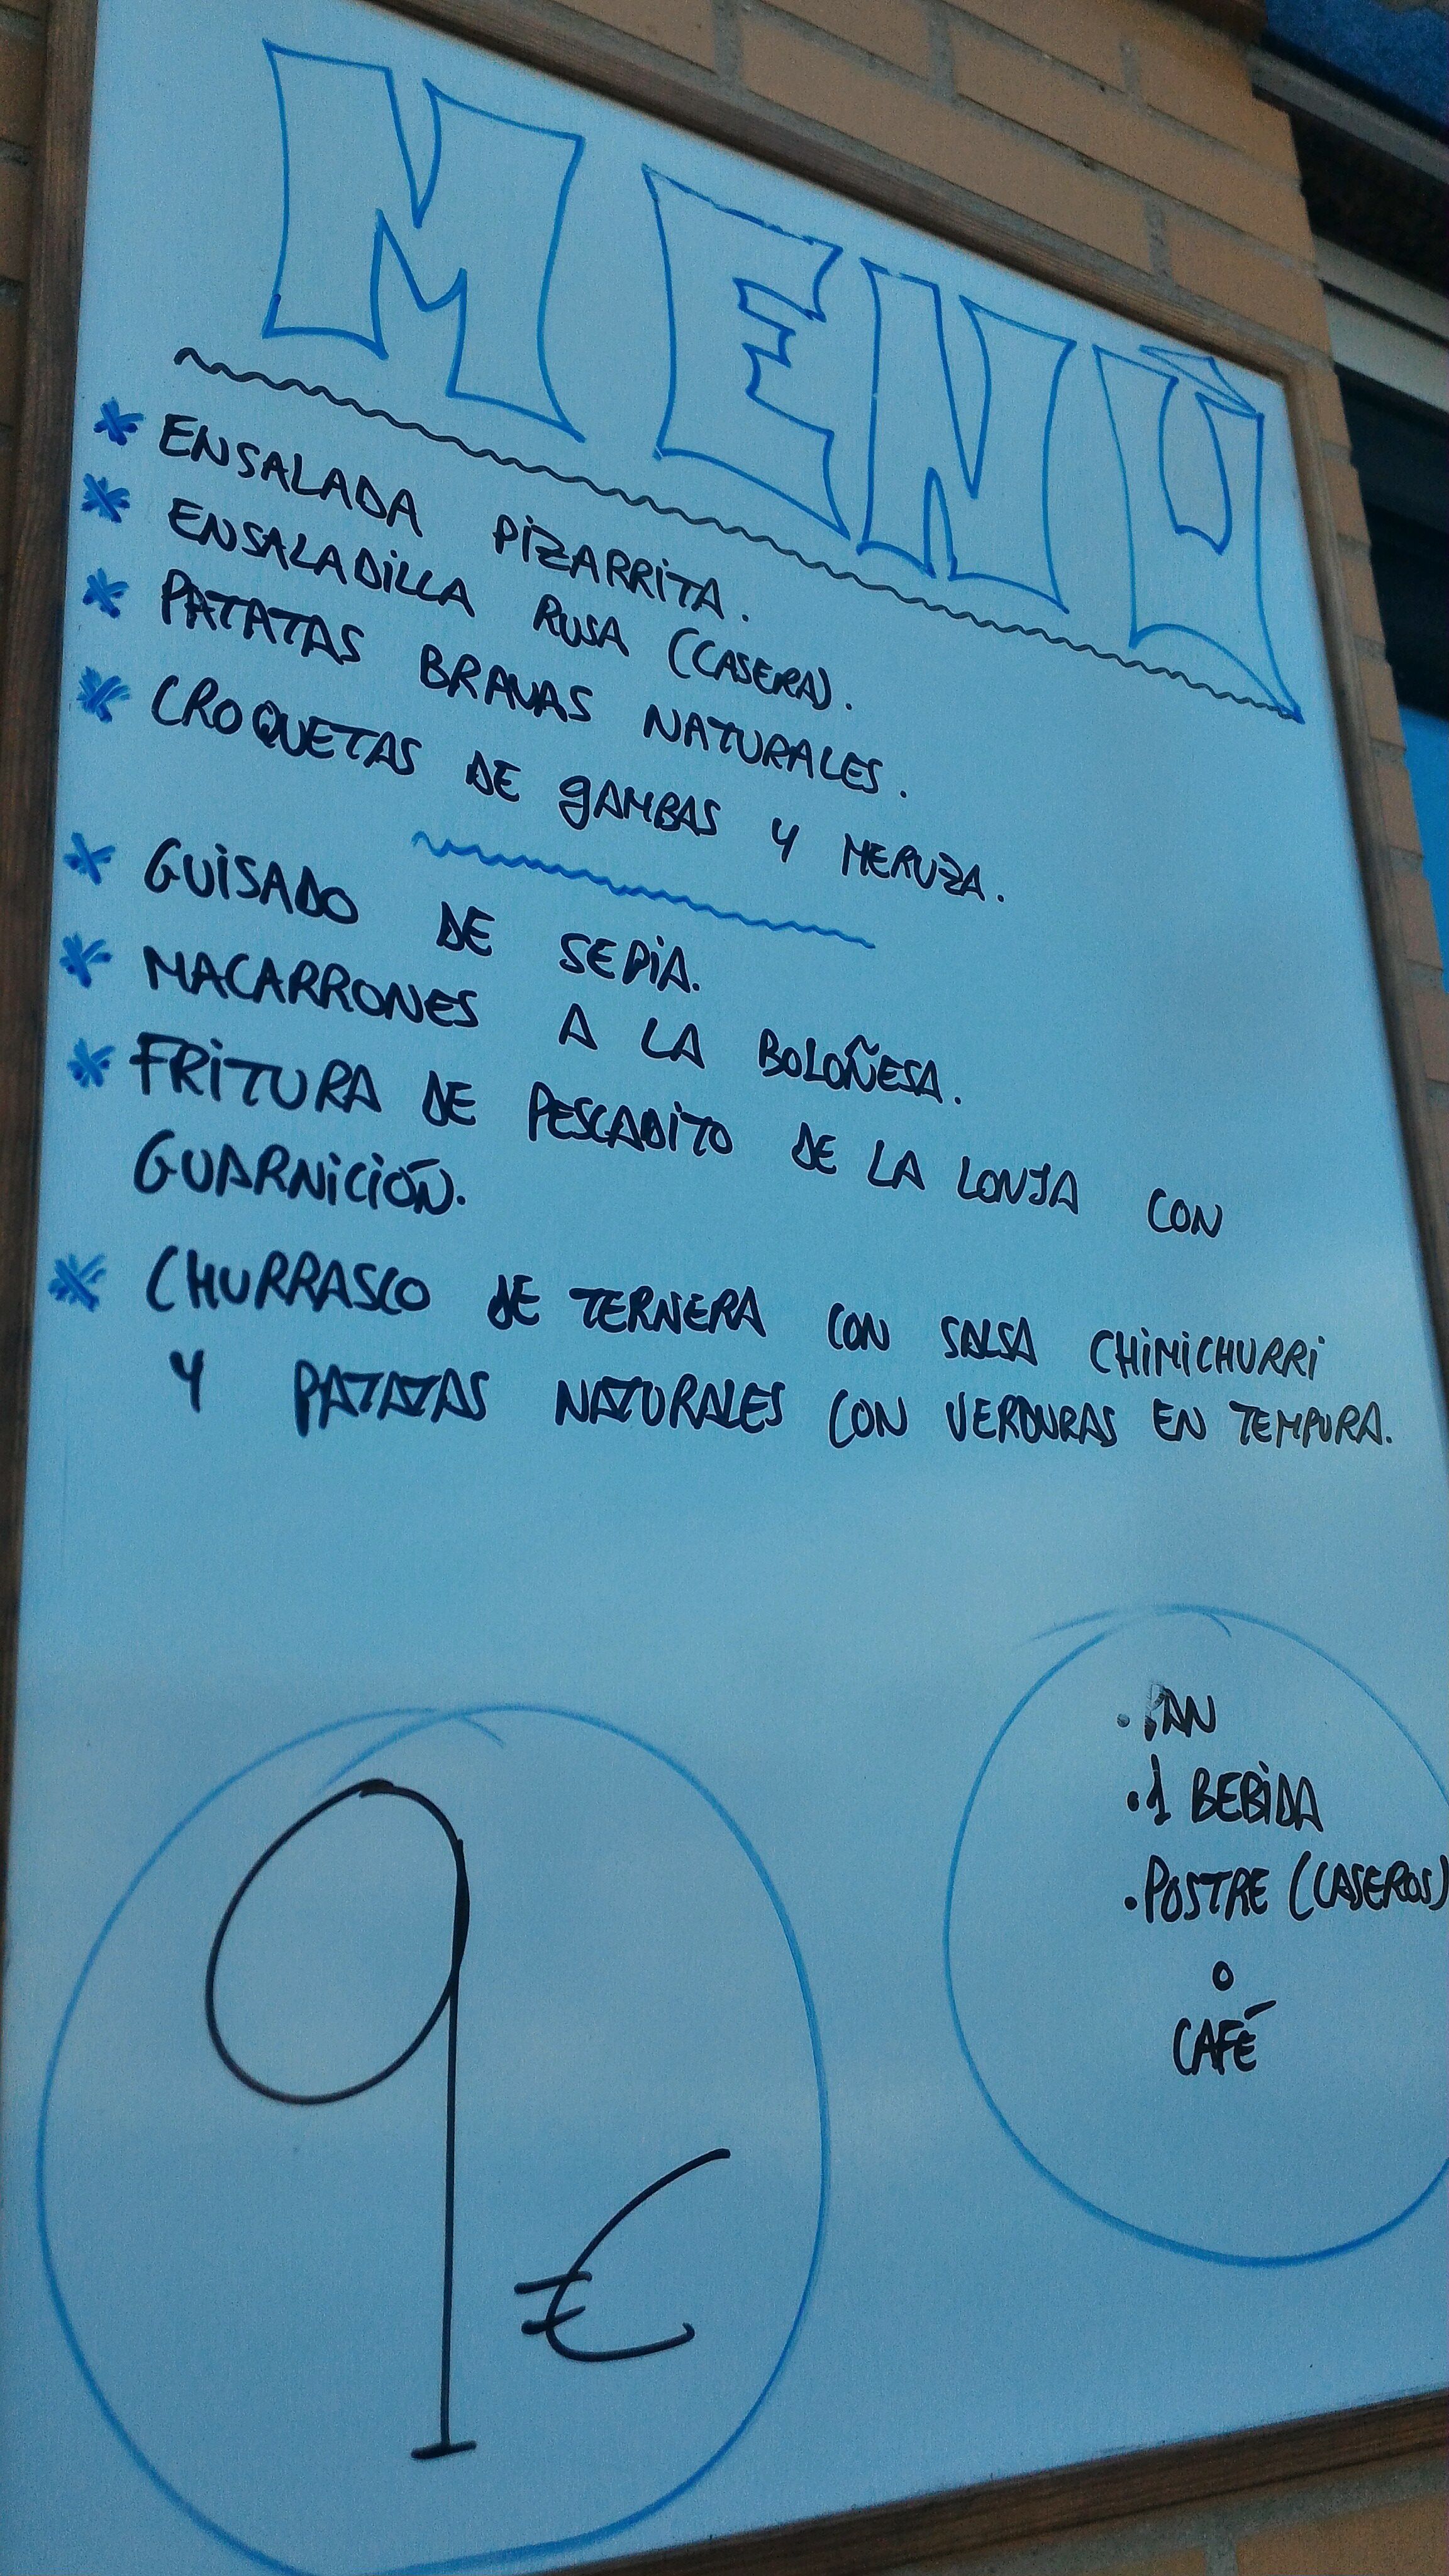 MENÚ
* ENSALADA PIZARRITA.
* ENSALADILLA RUSA (CASERA).
* PATATAS BRAVAS NATURALES.
* CROQUETAS DE GAMBAS Y MERUZA.
* GUISADO DE SEPIA.
* MACARRONES A LA BOLOÑESA.
* FRITURA DE PESCADITO DE LA LONJA CON
GUARNICIÓN.
* CHURRASCO DE TERNERA CON SALSA CHIMICHURRI
Y PATATAS NATURALES CON VERDURAS EN TEMPURA.
9 €
. PAN
. 1 BEBIDA
. POSTRE (CASEROS)
O
CAFÉ